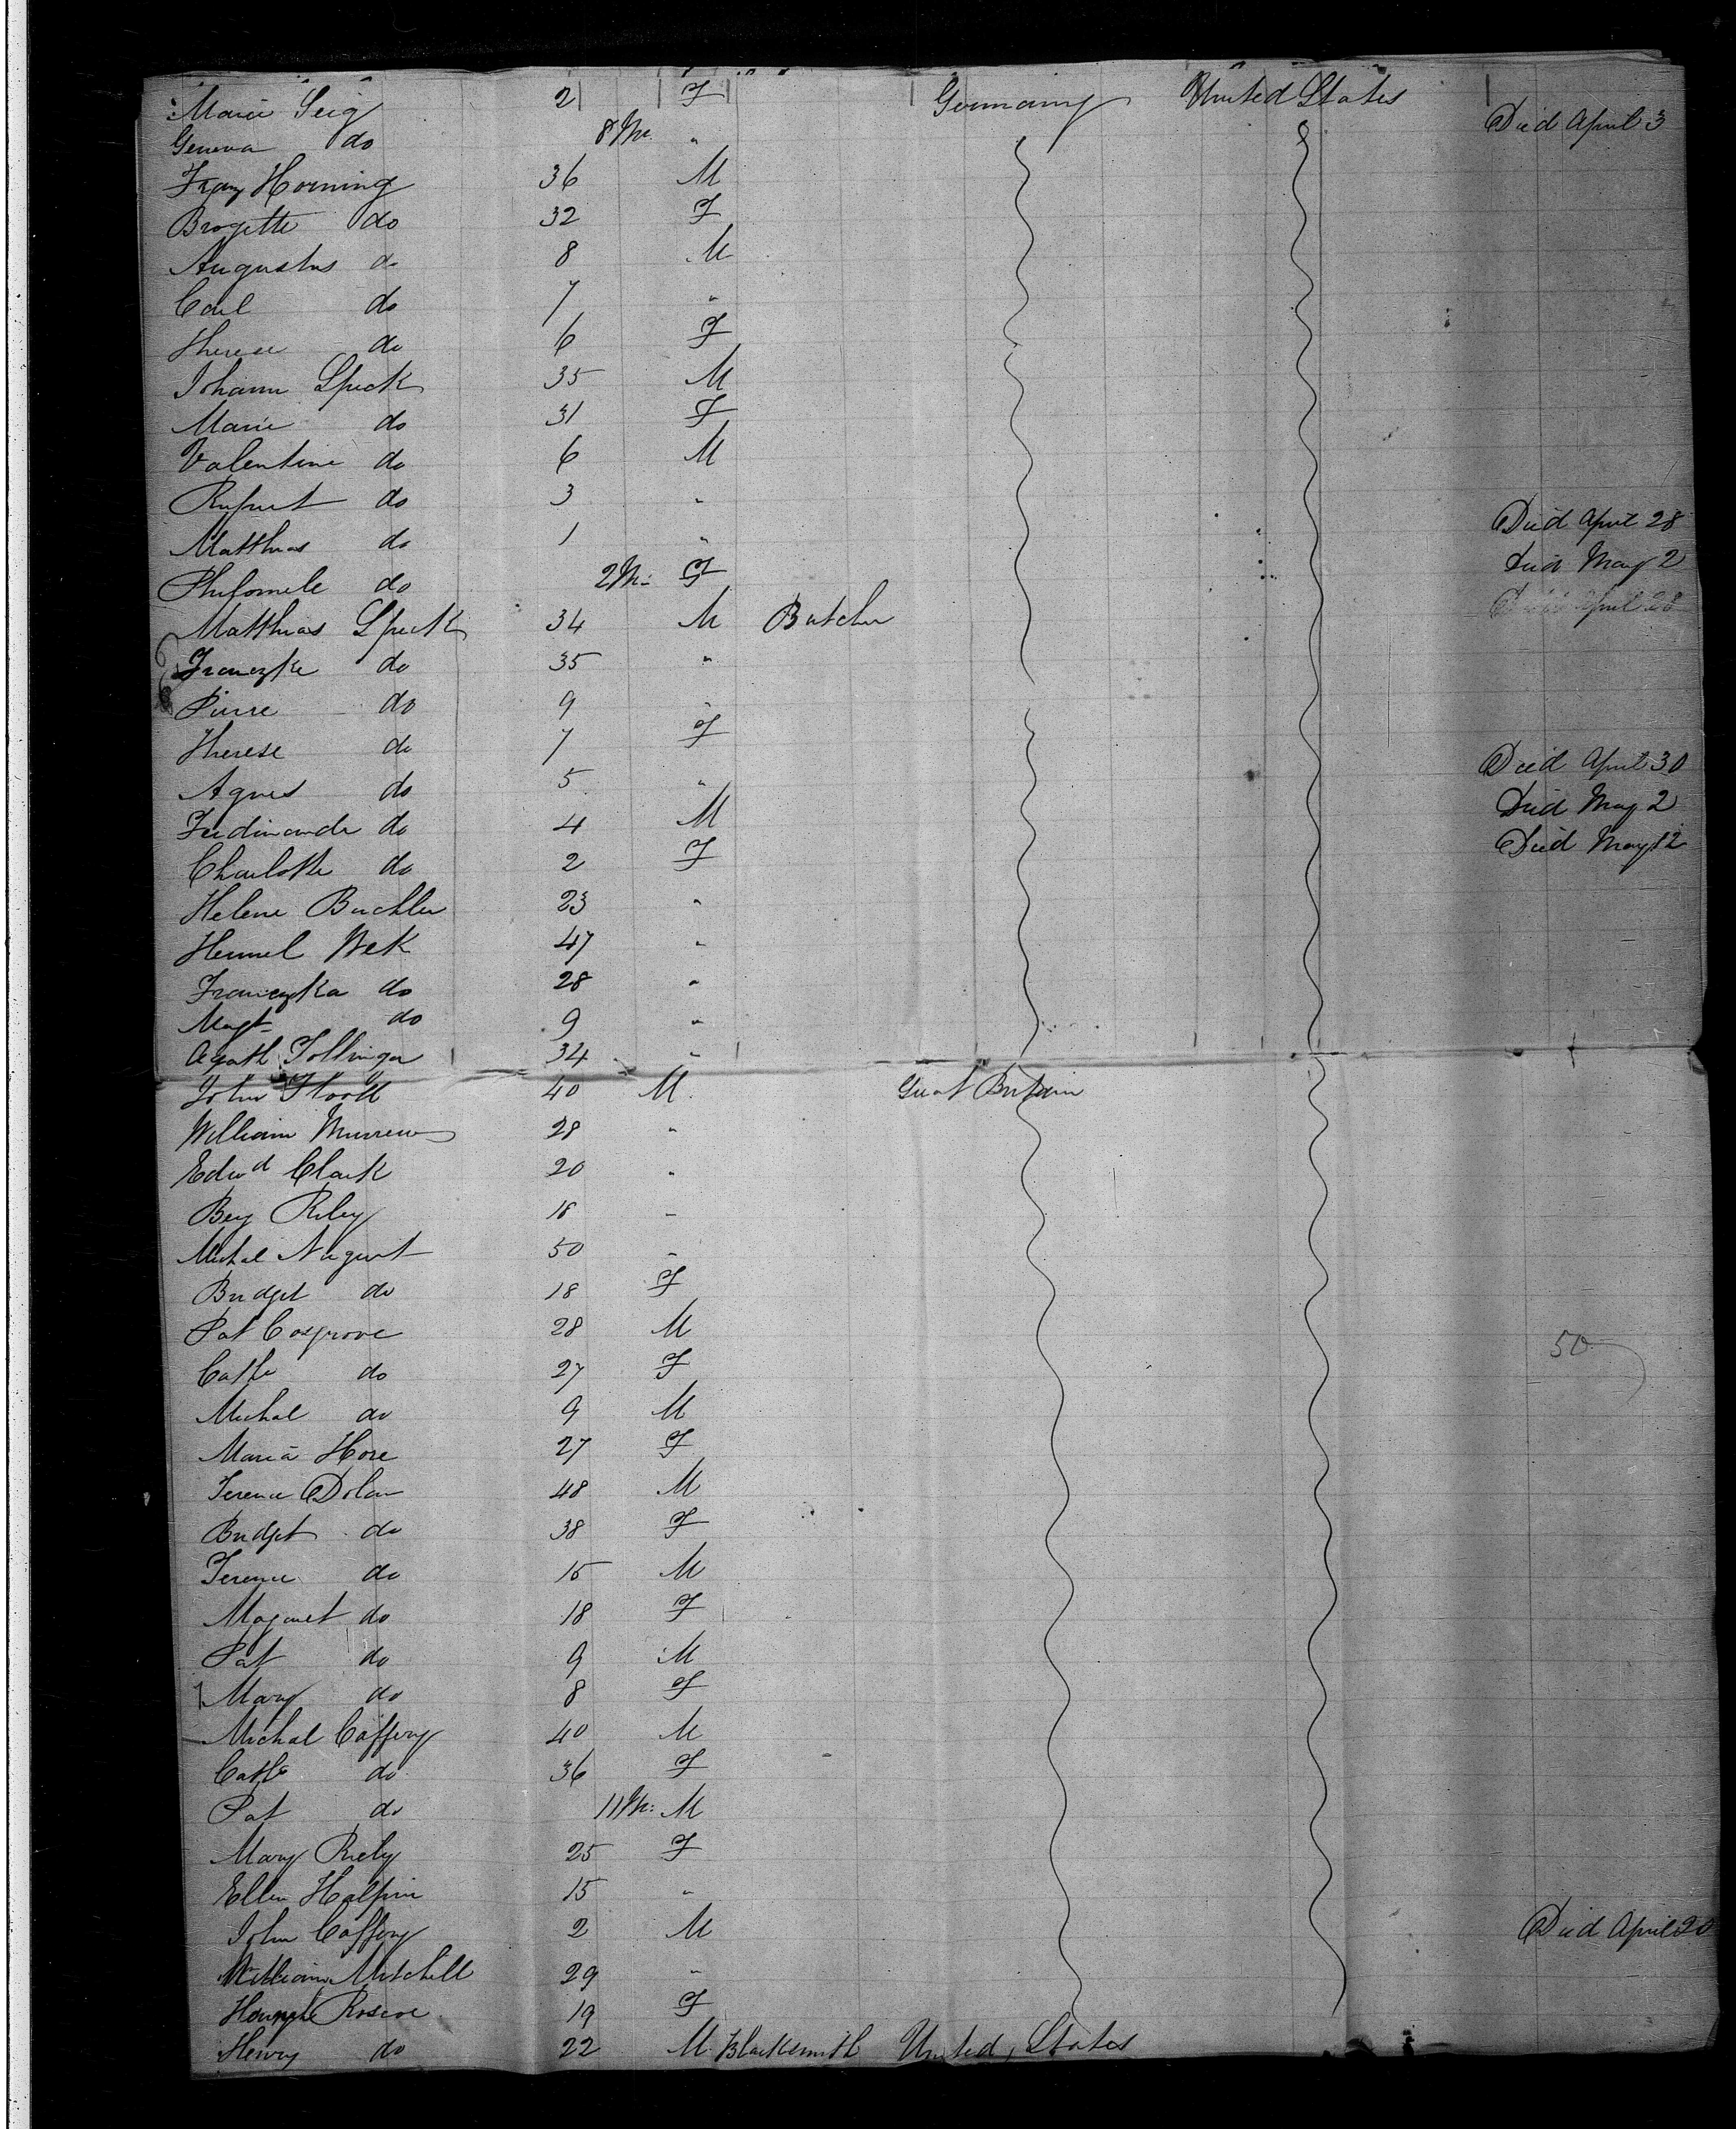 Marie Seig 2 F Germany United States
Geneva do 8 M. " Died April 3
Franz Horning 36 M
Brogette do 32 F
Augustus do 8 M
Carl do 7 "
Therese do 6 F
Johann Speck 35 M
Marie do 31 F
Valentine do 6 M
Rupert do 3 "
Matthias do 1 " Died April 28
Philomele do 2 M: F Died May 2
Matthias Speck 34 M Butcher Died April 28
Franzke do 35 "
Pierre do 9 "
Therese do 7 F
Agnes do 5 " Died April 30
Ferdinande do 4 M Died May 2
Charlotte do 2 F Died May 12
Helene Buchler 23 "
Hemmel Wek 47 "
Franczka do 28 "
Magt do 9 "
Agath Tollinger 34 "
John 40 M. Great Britain
William 28 "
Edwd Clark 20 "
Riley 16 "
Michal Nugent 50 "
Bridget do 18 F
Pat Cosgrove 28 M 50
Cathe do 27 F
Michal do 9 M
Maria Hore 27 F
Terence Dolan 48 M
Bridget do 38 F
Terence do 15 M
Magaret do 18 F
Pat do 9 M
Mary do 8 F
Michal Caffery 40 M
Cathe do 36 F
Pat do 11 M: M
Mary Riely 25 F
Ellen Halpin 15 "
John Caffery 2 M Died April 20
William Mitchell 29 "
Roscoe 19 F
Henry do 22 M Blacksmith United States